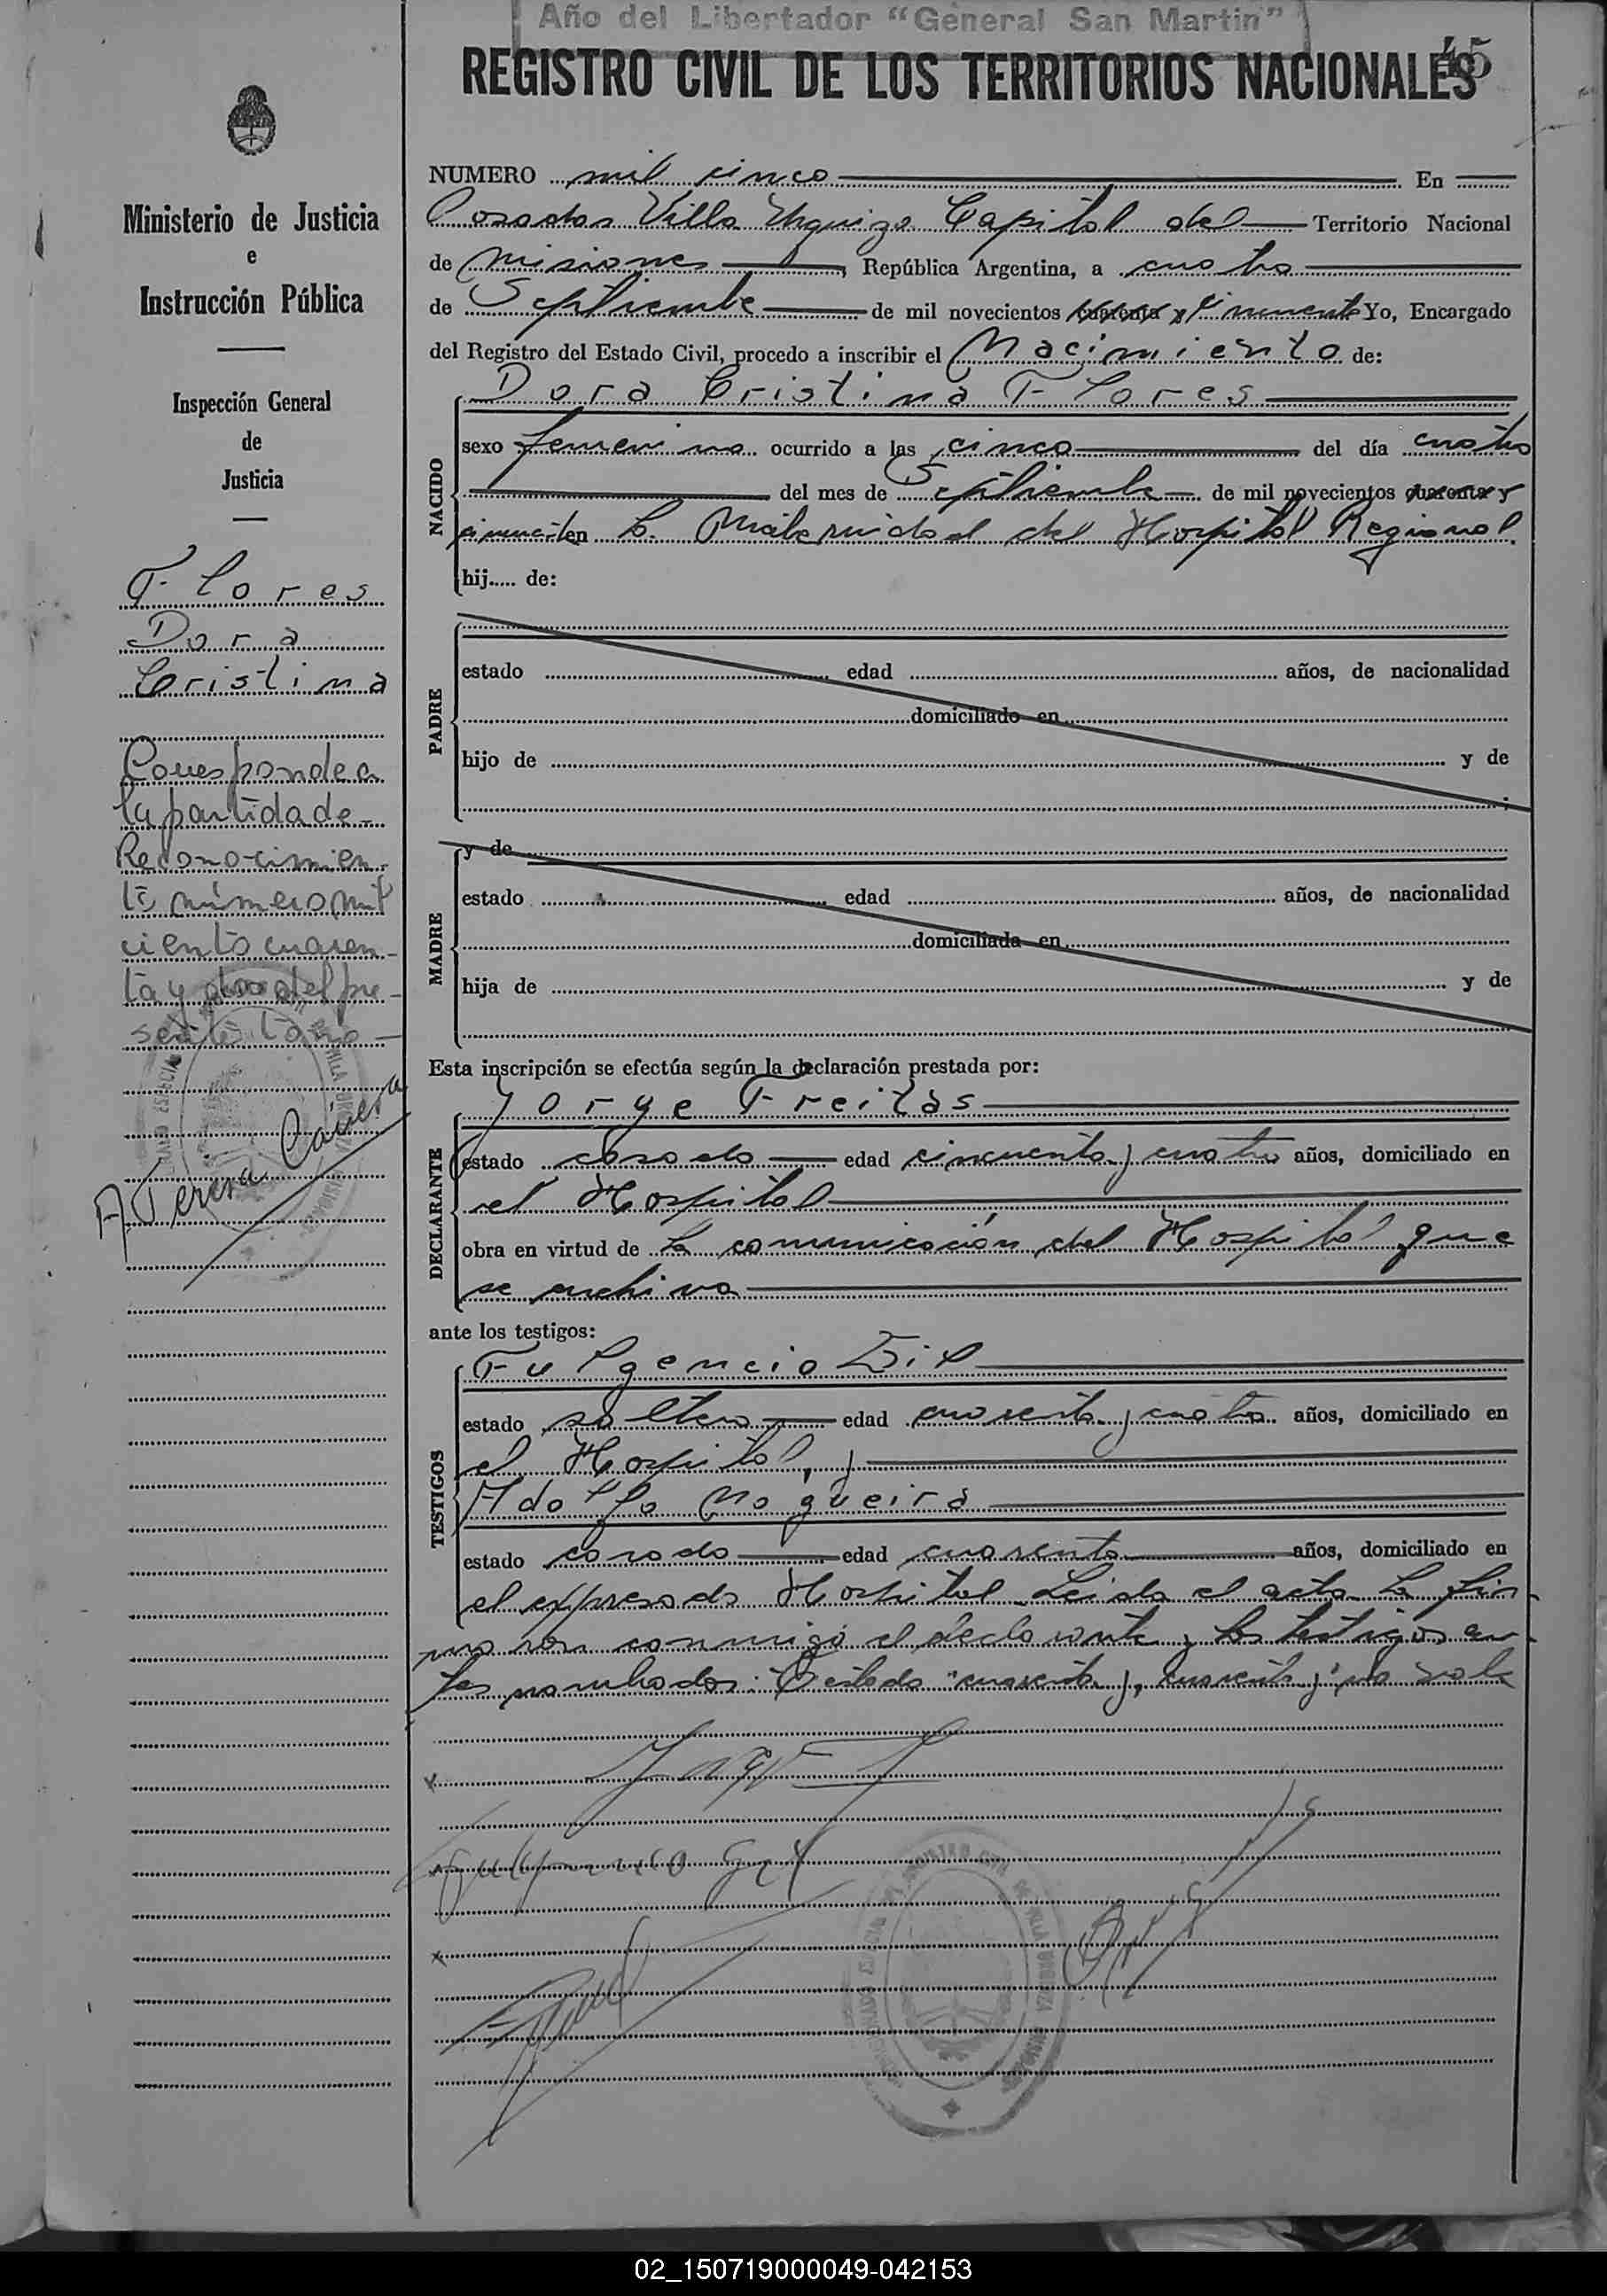 Año del Libertador "General San Martin"
REGISTRO CIVIL DE LOS TERRITORIOS NACIONALES
45
Ministerio de Justicia
e
Instrucción Pública
Inspección General
de
Justicia
Flores
Dora
Cristina
Corresponde a
la partida de
Reconocimien-
to número mil
ciento cuaren-
ta y dos del pre-
sente tomo
NUMERO mil cinco En
Posadas Villa Urquiza Capital del Territorio Nacional
de Misiones, República Argentina, a cuatro
de Septiembre de mil novecientos cuarenta y cincuenta Yo, Encargado
del Registro del Estado Civil, procedo a inscribir el Nacimiento de:
Dora Cristina Flores
NACIDO
sexo femenino ocurrido a las cinco del día cuatro
del mes de Septiembre de mil novecientos cuarenta y
en la Maternidad del Hospital Regional
hij..... de:
PADRE
estado edad años, de nacionalidad
domiciliado en
hijo de y de
;
MADRE
y de
estado edad años, de nacionalidad
domiciliada en
hija de y de
Esta inscripción se efectúa según la declaración prestada por:
DECLARANTE
Jorge Freitas
estado casado edad cincuenta y cuatro años, domiciliado en
el Hospital
obra en virtud de la comunicación del Hospital que
se archiva
ante los testigos:
TESTIGOS
Fulgencio Gil
estado soltero edad cuarenta y cuatro años, domiciliado en
el Hospital, y
Adolfo Nogueira
estado casado edad cuarenta años, domiciliado en
el expresado Hospital. Leida el acta la fir-
maron conmigo el declarante y los testigos an-
tes nombrados. Testado "cuarenta y, cuarenta y" no vale
Fulgencio Gil
02_150719000049-042153